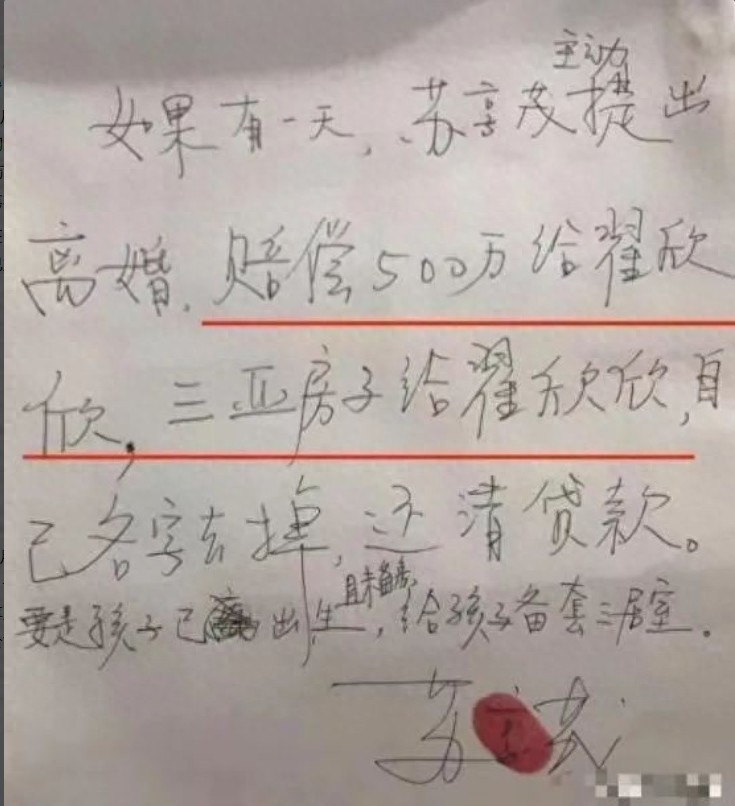 主动
如果有一天，苏享茂提出
离婚，赔偿500万给翟欣
欣，三亚房子给翟欣欣，自
己名字去掉，还清贷款。
且未备房
要是孩子已出生，给孩子备套三居室。
苏享茂